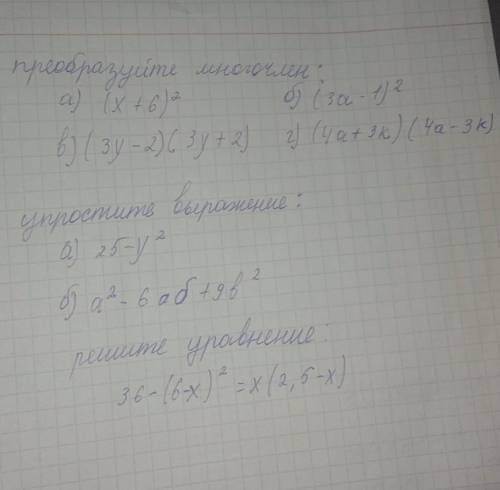 преобразуйте многочлен:
а) (х+6)² б) (3а-1)²
в) (3у-2)(3у+2) г) (4а+3к)(4а-3к)
упростите выражение:
а) 25-у²
б) а²-6аб+9в²
решите уравнение:
36-(6-х)²=х(2,5-х)